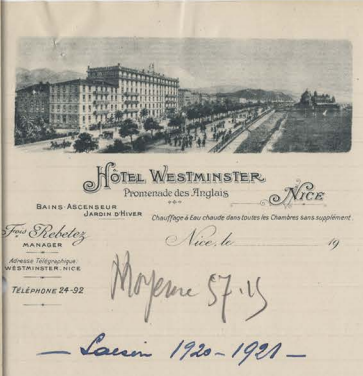 HÔTEL WESTMINSTER
Promenade des Anglais
NICE
BAINS-ASCENSEUR
JARDIN D'HIVER
Chauffage à Eau chaude dans toutes les Chambres sans supplément.
Fois Rebetez
MANAGER
Nice, le 19
Adresse Télégraphique:
WESTMINSTER, NICE
TÉLÉPHONE 24-92
Moyenne 57.15
— Saison 1920-1921 —